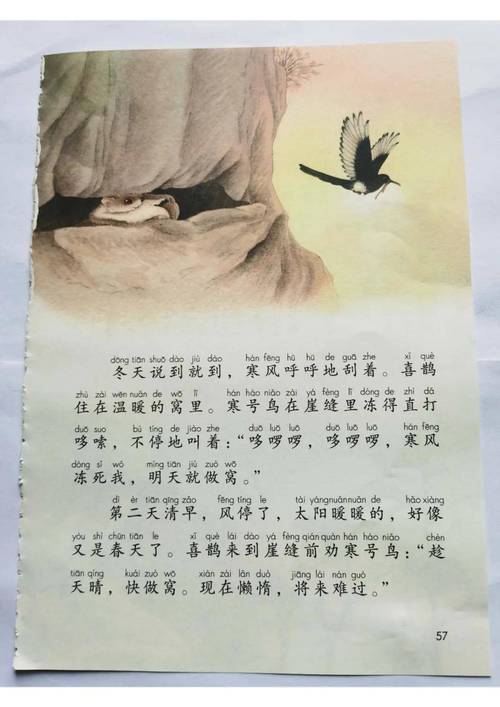 dōng tiān shuō dào jiù dào hán fēng hū hū de guā zhe xǐ què
冬天说到就到，寒风呼呼地刮着。喜鹊
zhù zài wēn nuǎn de wō lǐ hán hào niǎo zài yá fèng lǐ dòng de zhí dǎ
住在温暖的窝里。寒号鸟在崖缝里冻得直打
duō suo bù tíng de jiào zhe duō luō luō duō luō luō hán fēng
哆嗦，不停地叫着：“哆啰啰，哆啰啰，寒风
dòng sǐ wǒ míng tiān jiù zuò wō
冻死我，明天就做窝。”
dì èr tiān qīng zǎo fēng tíng le tài yáng nuǎn nuǎn de hǎo xiàng
第二天清早，风停了，太阳暖暖的，好像
yòu shì chūn tiān le xǐ què lái dào yá fèng qián quàn hán hào niǎo chèn
又是春天了。喜鹊来到崖缝前劝寒号鸟：“趁
tiān qíng kuài zuò wō xiàn zài lǎn duò jiāng lái nán guò
天晴，快做窝。现在懒惰，将来难过。”
57